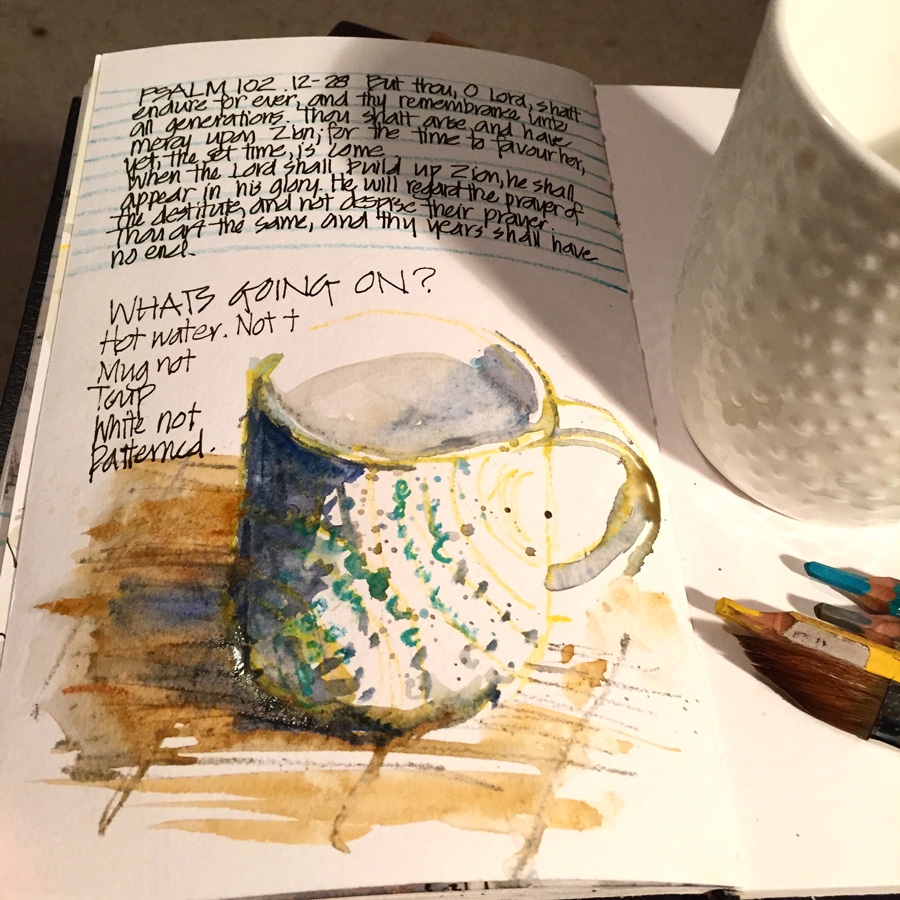 PSALM 102. 12-28 But thou, O Lord, shalt
endure for ever, and thy remembrance unto
all generations. Thou shalt arise, and have
mercy upon Zion; for the time to favour her,
yet, the set time, is come
When the Lord shall build up Zion, he shall
appear in his glory. He will regard the prayer of
the destitute, and not despise their prayer.
Thou art the same, and thy years shall have
no end.
WHATS GOING ON?
Hot water. Not t
Mug not
Tcup
White not
Patterned.